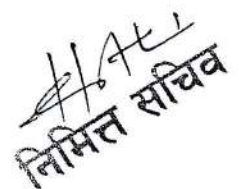 निमित्त सचिव